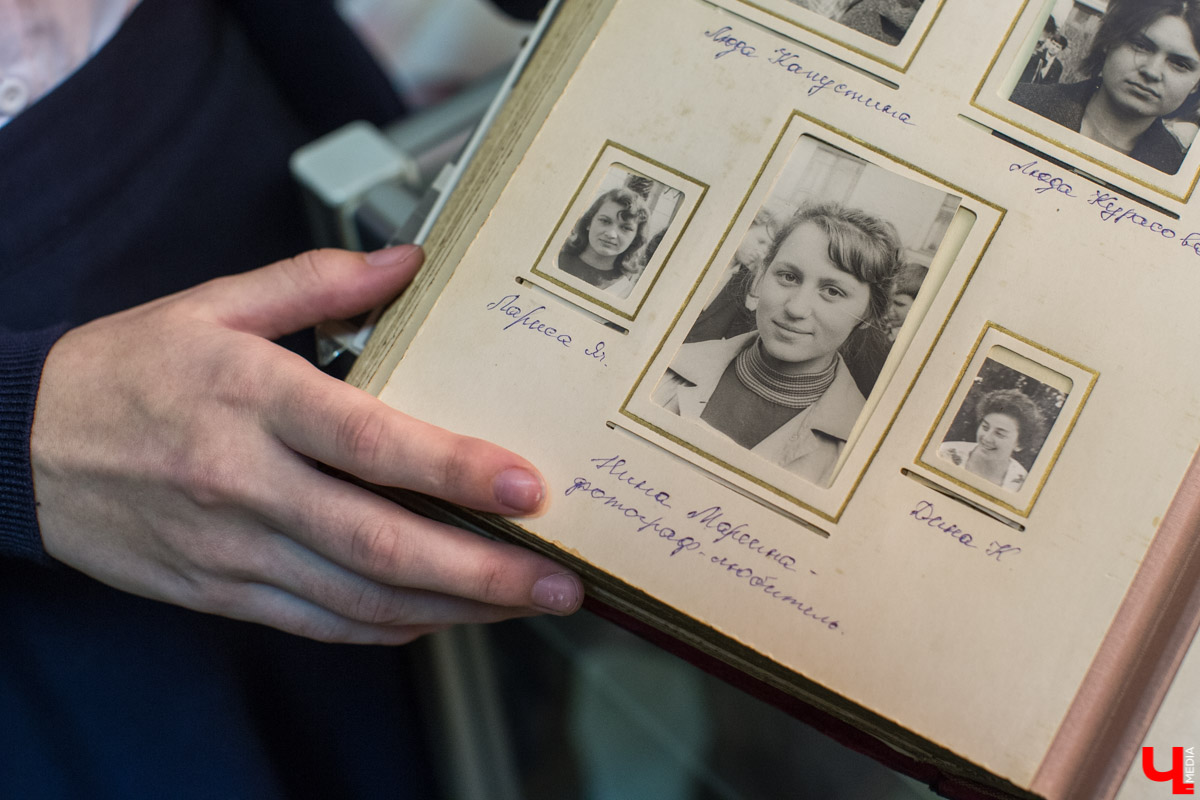 Люда Капустина
Люда Курасова
Лариса Яг.
Нина Марсина -
фотограф-любитель.
Дина К.
Ч MEDIA